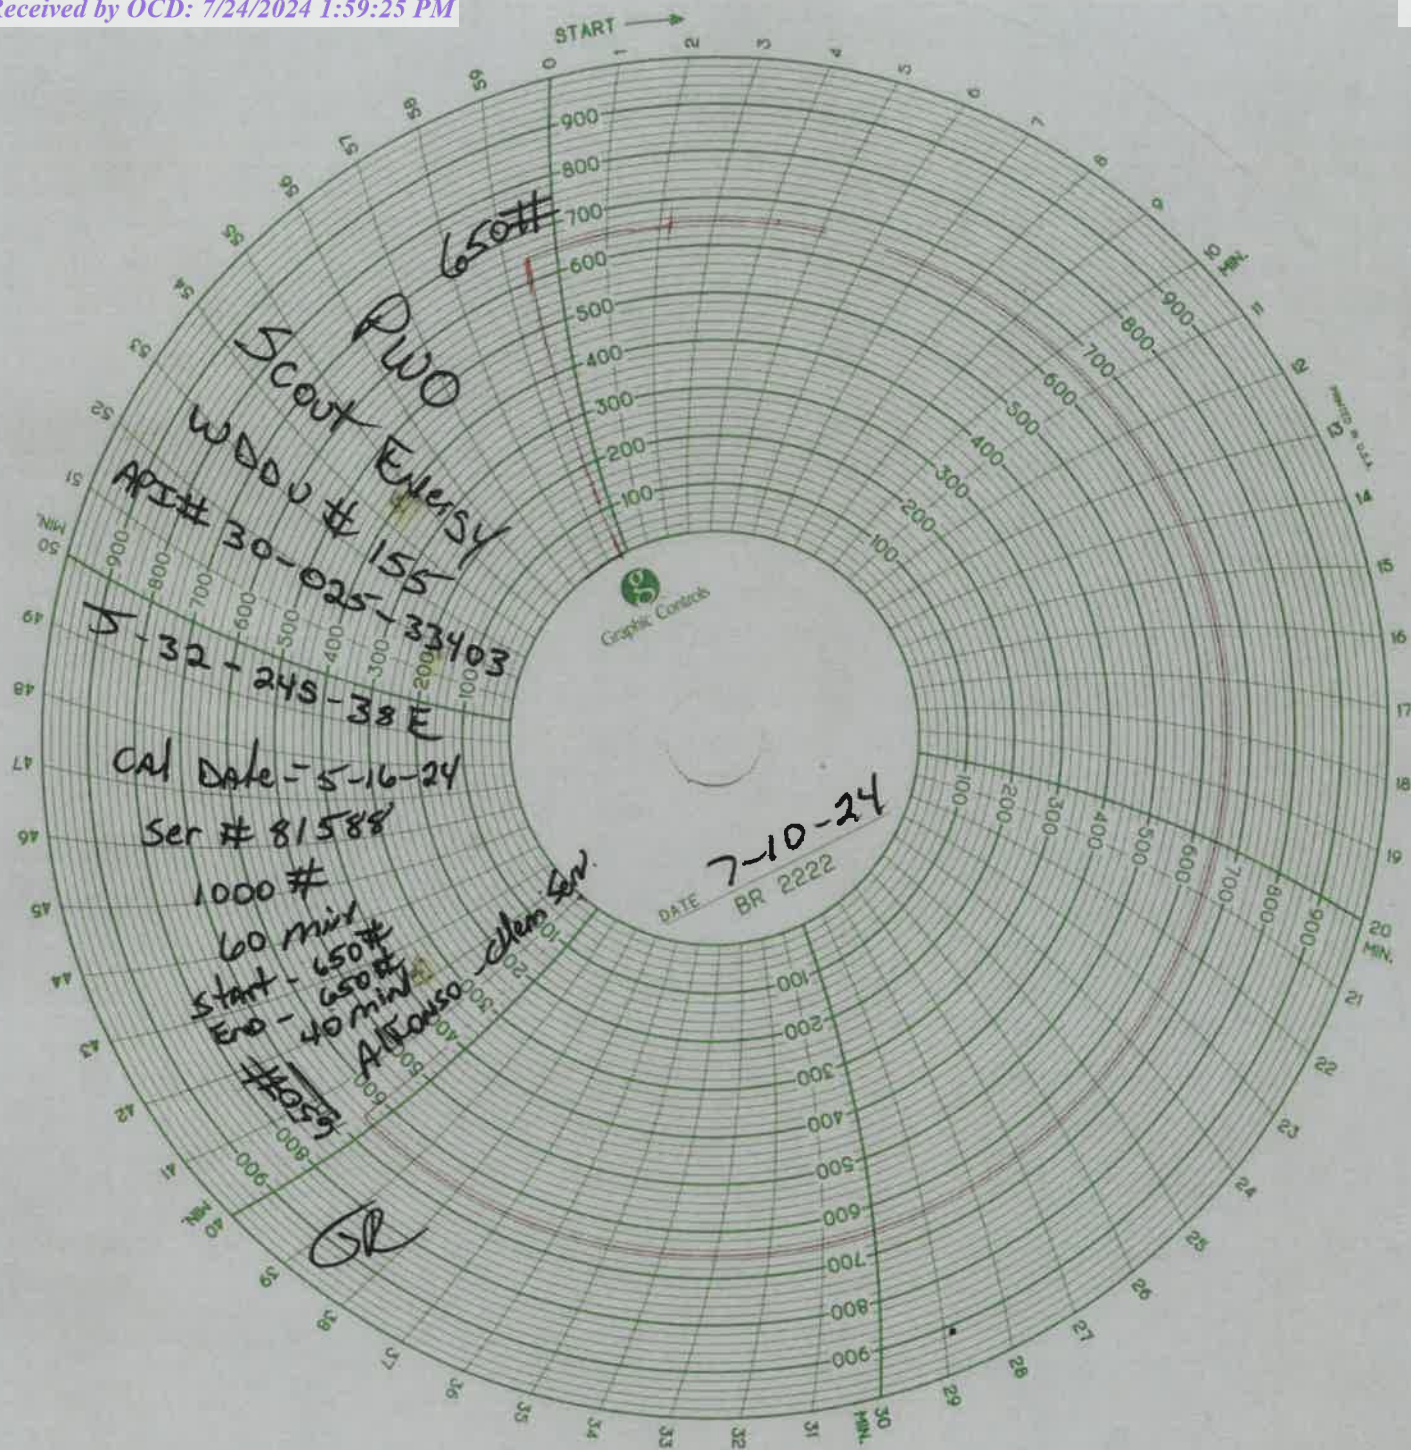 Received by OCD: 7/24/2024 1:59:25 PM
START
0 1 2 3 4 5 6 7 8 9 10 MIN. 11 12 13 14 15 16 17 18 19 20 MIN. 21 22 23 24 25 26 27 28 29 30 MIN. 31 32 33 34 35 36 37 38 39 40 MIN. 41 42 43 44 45 46 47 48 49 50 MIN. 51 52 53 54 55 56 57 58 59
PRINTED IN U.S.A.
900 800 700 600 500 400 300 200 100
900 800 700 600 500 400 300 200 100
100 200 300 400 500 600 700 800 900
100 200 300 400 500 600 700 800 900
100 200 300 400 500 600 800 900
900 800 700 600 500 400 300 200 100
650#
PWO
Scout Energy
WDDU # 155
API# 30-025-33403
J-32-24S-38E
CAl DAte - 5-16-24
Ser # 81588
1000 #
60 min
Start - 650#
End - 650#
40 min
Alfonso
650#
g
Graphic Controls
7-10-24
DATE
BR 2222